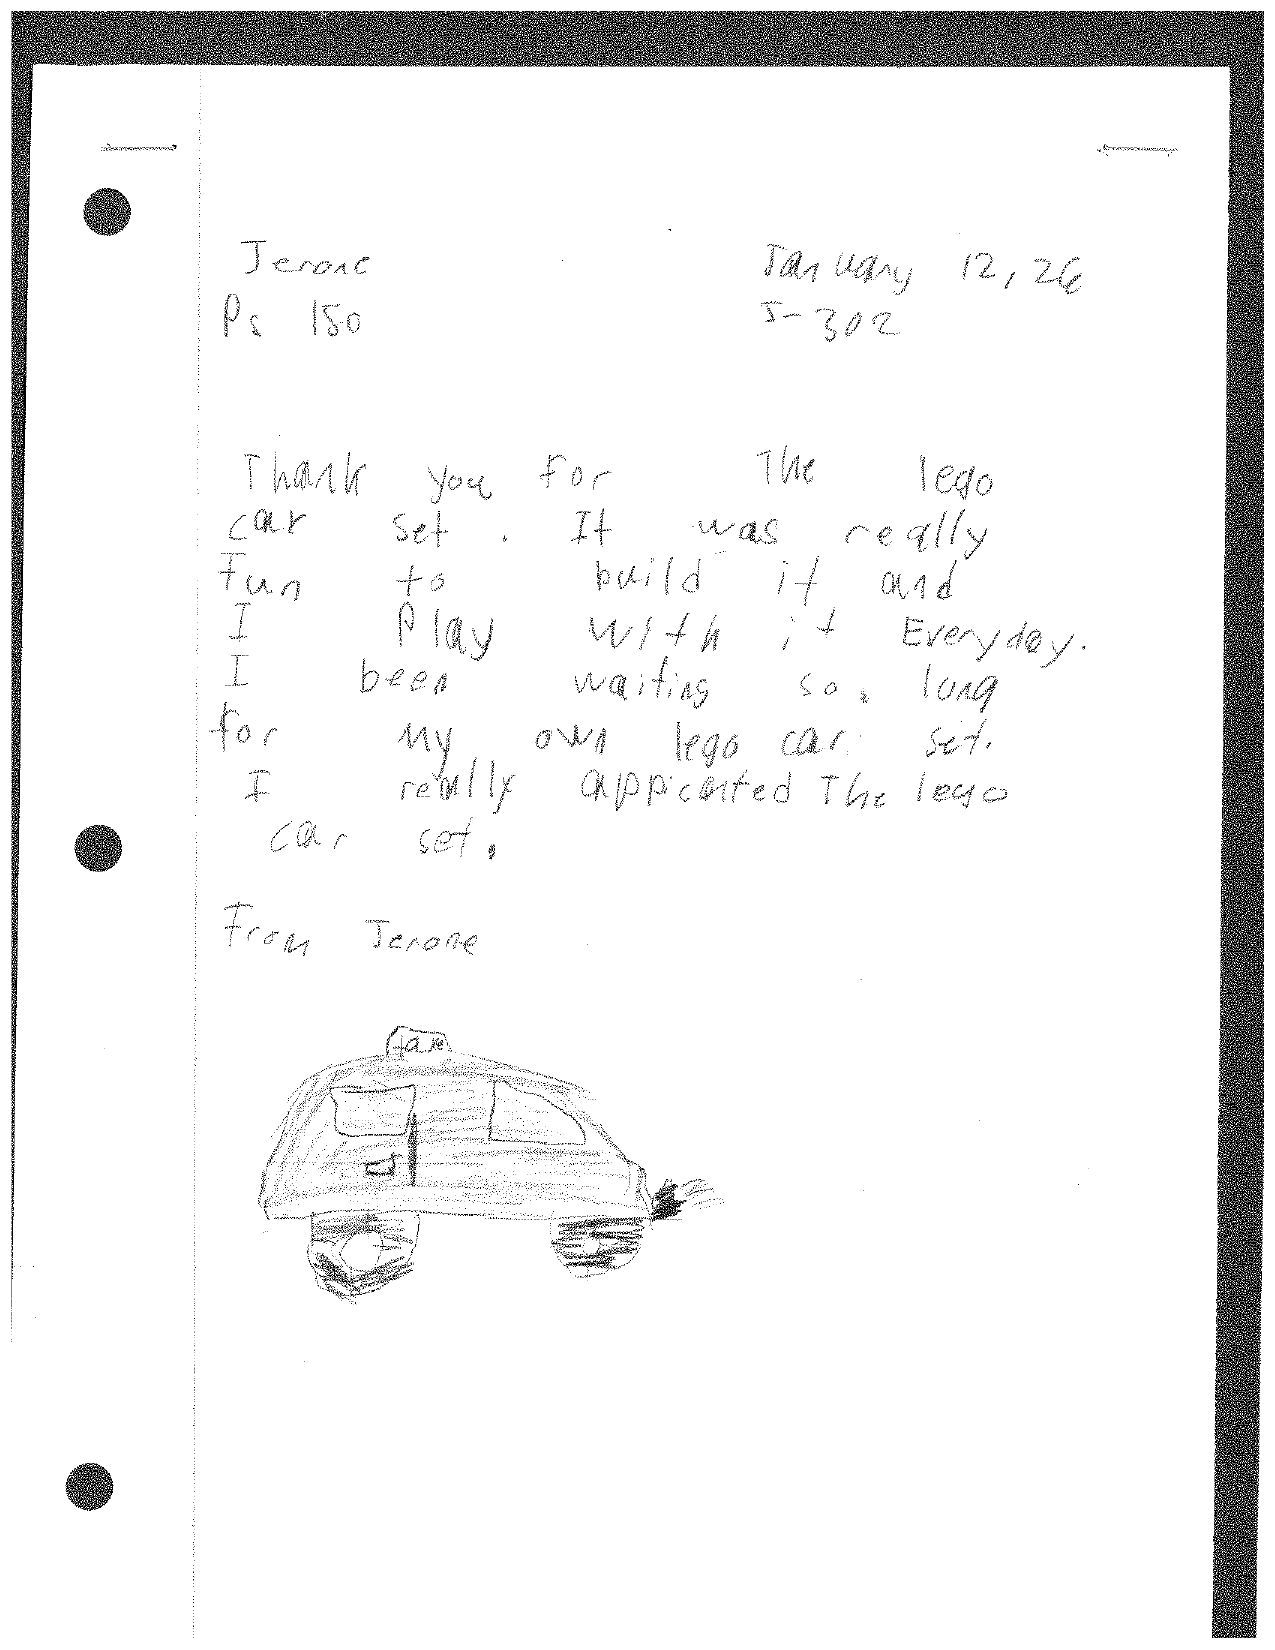 Jerone January 12, 26
Ps 150 J-302
Thank you for The lego
car set. It was really
Fun to build it and
I Play with it Everyday.
I been waiting so. long
for my own lego car set.
I really appicated The lego
car set.
From Jerone